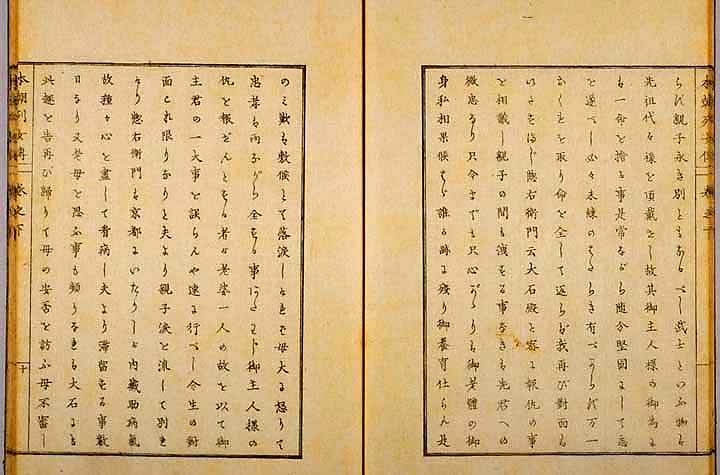 らバ親子永き別ともあるべし武士といふ物も
先祖代々禄を頂戴をし故其御主人様の御為に
も一命を捨る事是常ながら随分堅固にして志
を遂べし必々未練のはたらき有べからず万一
おくれを取り命を全して返らバ我再び對面も
いたさまじ惣右衛門云大石殿と密に報仇の事
を相談し親子の間も洩さる事なきも先君への
微忠なり只今までも只心がゝりハ御老體の御
身私相果候はゞ誰か跡に残り御養育仕らん是
のミ歎も敷候とて落涙しければ母大に怒りて
忠孝ハ両ながら全する事 御主人様の
仇を報ぜんとする者が老婆一人の故を以て御
主君の一大事を誤らんや速に行べし今生の對
面これ限りなりと夫より親子涙を流して別を
なり惣右衛門も京都にいたりしが内蔵助病氣
故種々心を盡して看病し夫より滞留する事数
日なり又老母を思ふ事も頻りなれども大石にも
此趣を告再び歸りて母の安否を訪ふ母不審し
本朝列女傳 巻之下 十